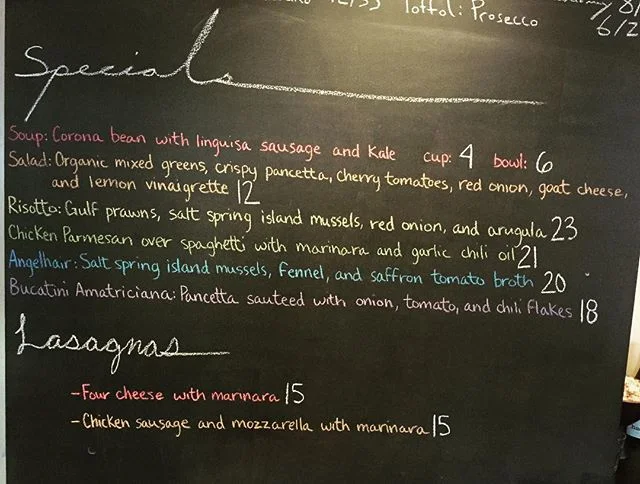 Toffol: Prosecco
6/2
Specials
Soup: Corona bean with linguisa sausage and Kale cup: 4 bowl: 6
Salad: Organic mixed greens, crispy pancetta, cherry tomatoes, red onion, goat cheese,
and lemon vinaigrette 12
Risotto: Gulf prawns, salt spring island mussels, red onion, and arugula 23
Chicken Parmesan over spaghetti with marinara and garlic chili oil 21
Angelhair: Salt spring island mussels, Fennel, and saffron tomato broth 20
Bucatini Amatriciana: Pancetta sauteed with onion, tomato, and chili flakes 18
Lasagnas
-Four cheese with marinara 15
-Chicken sausage and mozzarella with marinara 15